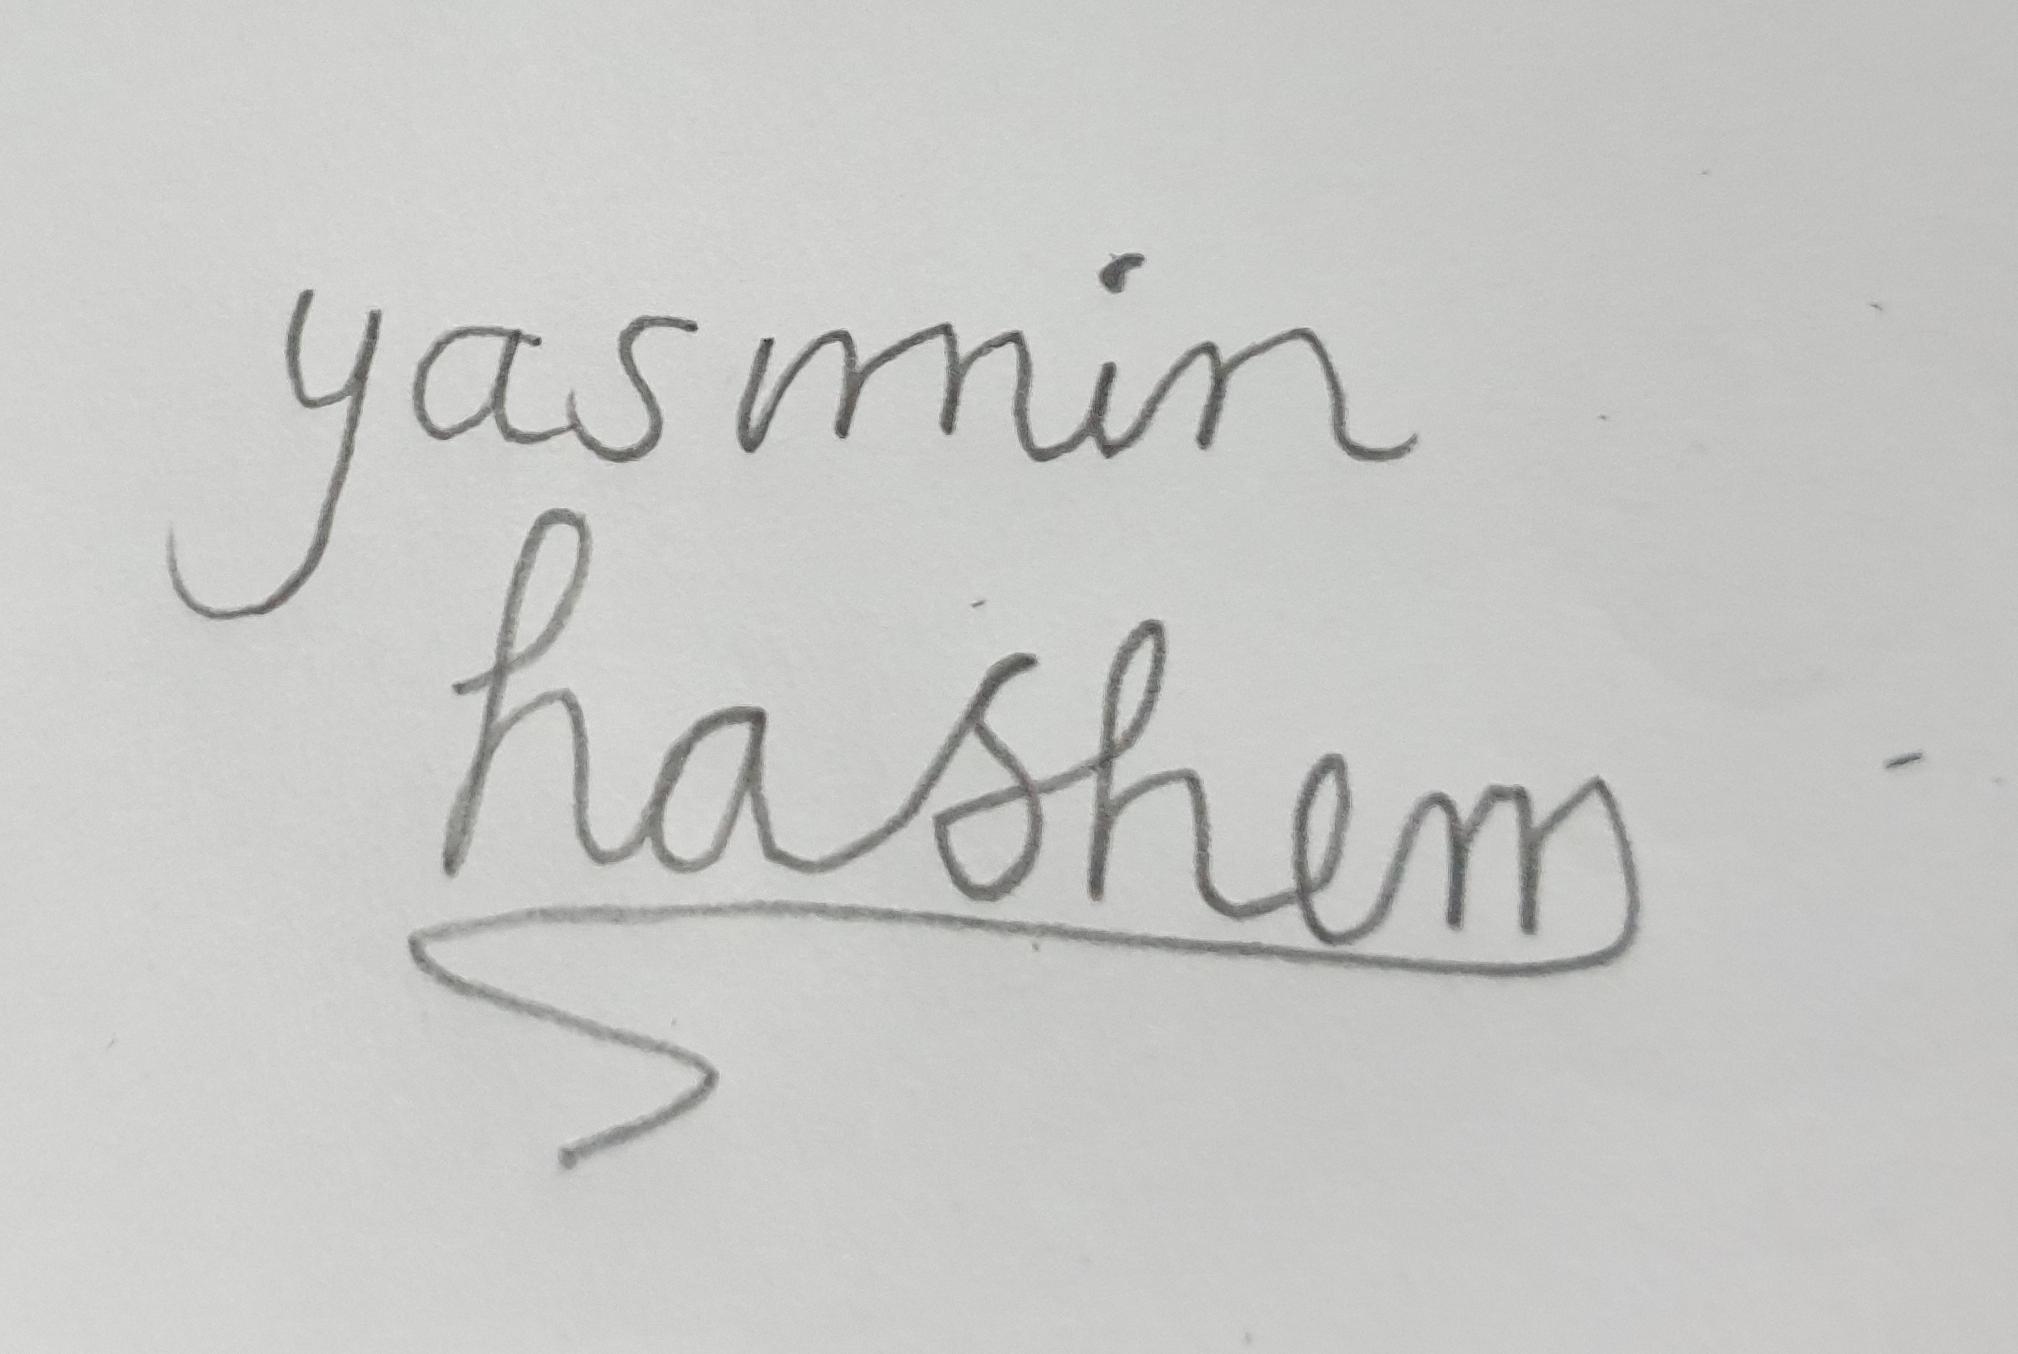 yasmin
hashem